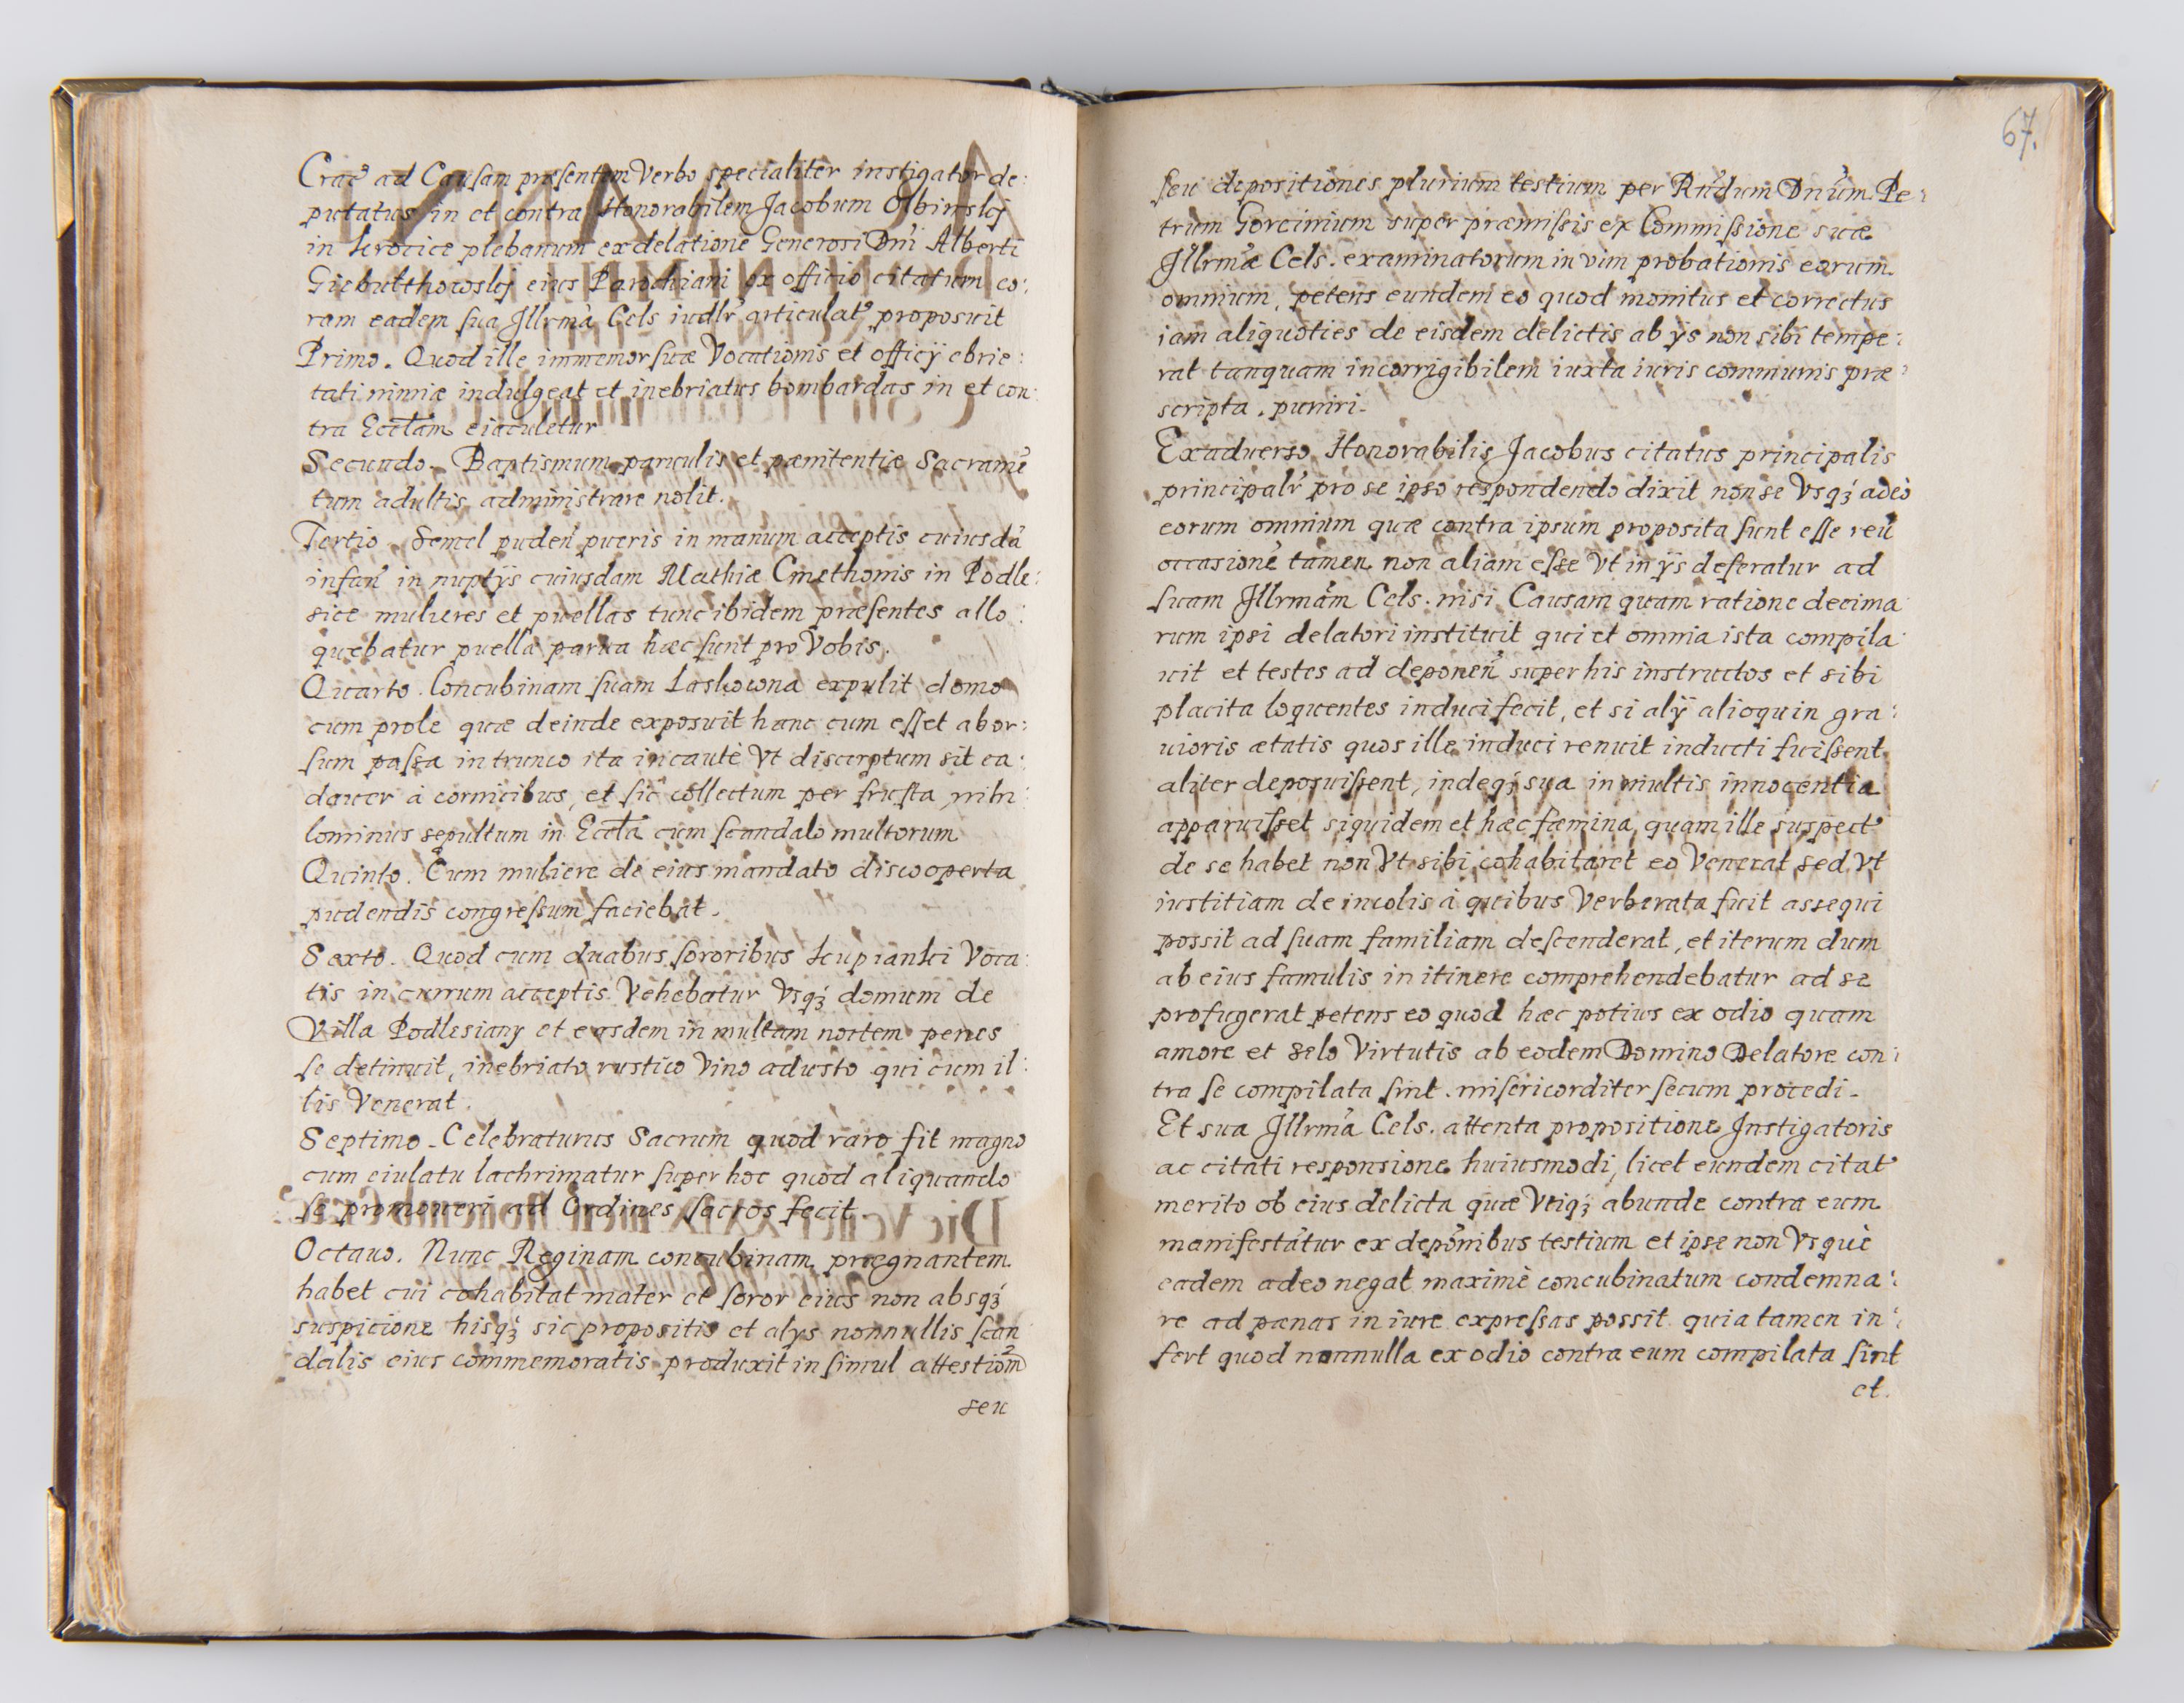 Crac̃ ad Causam præsentem Verbo specialiter instigator de:
putatus in et contra Honorabilem Jacobum Olbinski
in plebanum ex delatione Generosi Dni Alberti
eius Parochiani ex officio citatum co:
ram eadem sua Illrmã Cels iudlr̃ articulat̃ proposuit
Primo. Quod ille immemor suæ Vocationis et officÿ ebrie:
tati nimiæ indulgeat et inebriatus bombardas in et con:
tra Eccl̃am eiaculetur
Secundo. Baptismum paruulis et pænitentiæ Sacramẽ
tum adultis administrare nolit.
Tertio. Semel puden̄ pueris in manum acceptis cuiusdã
infan̄ in nuptÿs cuiusdam Mathiæ Cmethonis in Podle:
sice mulieres et puellas tunc ibidem præsentes allo:
quebatur puella parua hæc sunt pro Vobis.
Quarto. Concubinam suam Laskowna expulit domo
cum prole quæ deinde exposuit hanc cum esset abor:
sum passa in trunco ita incautè Vt discerptum sit ca:
dauer à cornicibus, et sic collectum per frusta nihi:
lominus sepultum in Eccl̃a cum scandalo multorum
Quinto. Cum muliere de eius mandato discooperta
pudendis congressum faciebat.
Sexto. Quod cum duabus sororibus Voca:
tis in currum acceptis Vehebatur Vsqꝫ domum de
Villa Podlesiany et easdem in multam noctem penes
se detinuit, inebriato rustico Vino adusto qui cum il:
lis Venerat.
Septimo. Celebraturus Sacrum quod raro fit magno
cum eiulatu lachrimatur super hoc quod aliquando
se promoueri ad Ordines sacros fecit
Octauo. Nunc Reginam concubinam prægnantem
habet cui cohabitat mater et soror eius non absqꝫ
suspicione hisqꝫ sic propositis et alys nonnullis scan
dalis eius commemoratis produxit in simul attestiom̃
seu
67.
seu depositiones plurium testium per Rñdum Dnũm Pe:
trum Gorcinium super præmissis ex Commissione suæ
Illrmæ Cels. examinatorum in vim probationis eorum
omnium, petens eundem eo quod monitus et correctus
iam aliquoties de eisdem delictis ab ÿs non sibi tempe:
rat tanquam incorrigibilem iuxta iuris communis præ:
scripta. puniri.
Exaduerso Honorabilis Jacobus citatus principalis
principalr̃ pro se ipso respondendo dixit non se Vsqꝫ adeò
eorum omnium quæ contra ipsum proposita sunt esse reũ
occasionẽ tamen non aliam esse Vt in ÿs deferatur ad
suam Illrmãm Cels. nisi Causam quam ratione decima
rum ipsi delatori instituit qui et omnia ista compila:
uit et testes ad deponen̄ super his instructos et sibi
placita loquentes induci fecit, et si alÿ alioquin gra:
uioris ætatis quos ille induci renuit inducti fuissent
aliter deposuissent, indeqꝫ sua in multis innocentia
apparuisset siquidem et hæc fæmina quam ille suspect̃
de se habet non Vt sibi cohabitaret eo Venerat sed Vt
iustitiam de incolis à quibus Verberata fuit assequi
possit ad suam familiam descenderat, et iterum dum
ab eius famulis in itinere comprehendebatur ad se
profugerat petens eo quod hæc potius ex odio quam
amore et selo Virtutis ab eodem Domino Delatore con:
tra se compilata sint. misericorditer secum procedi.
Et sua Illrmã Cels. attenta propositione Instigatoris
ac citati responsione huiusmodi, licet eundem citat̃
merito ob eius delicta quæ Vtiqꝫ abunde contra eum
manifestãtur ex depõnibus testium et ipse non Vsquè
eadem adeo negat maximè concubinatum condemna:
re ad pænas in iure expressas possit quia tamen in:
fert quod nonnulla ex odio contra eum compilata sint
et.